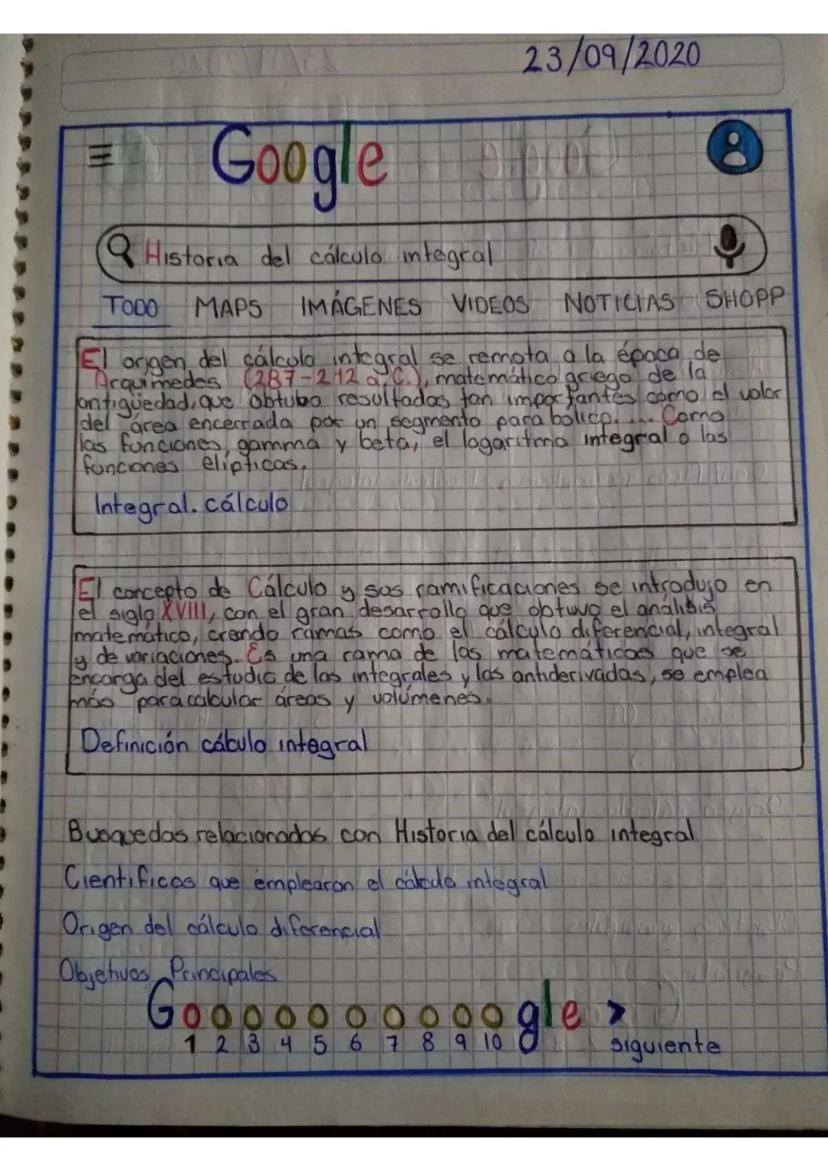 23/09/2020
Google
Historia del cálculo integral
TODO MAPS IMÁGENES VIDEOS NOTICIAS SHOPP
El origen del cálculo integral se remota a la época de
Arquimedes (287-212 a.C.), matemático griego de la
antigüedad, que obtubo resultados tan importantes como el valor
del área encerrada por un segmento parabolico. ... Como
las funciones, gamma y beta, el logaritmo integral o las
funciones elipticas.
Integral.cálculo
El concepto de Cálculo y sus ramificaciones se introdujo en
el siglo XVIII, con el gran desarrollo que obtuvo el análisis
matemático, creando ramas como el cálculo diferencial, integral
y de variaciones. Es una rama de las matemáticas que se
encarga del estudio de las integrales y las antiderivadas, se emplea
más para calcular áreas y volúmenes.
Definición cálculo integral
Busquedas relacionadas con Historia del cálculo integral
Cientificos que emplearon el cálculo integral
Origen del cálculo diferencial
Objetivos Principales
Goooooooooogle >
1 2 3 4 5 6 7 8 9 10 siguiente